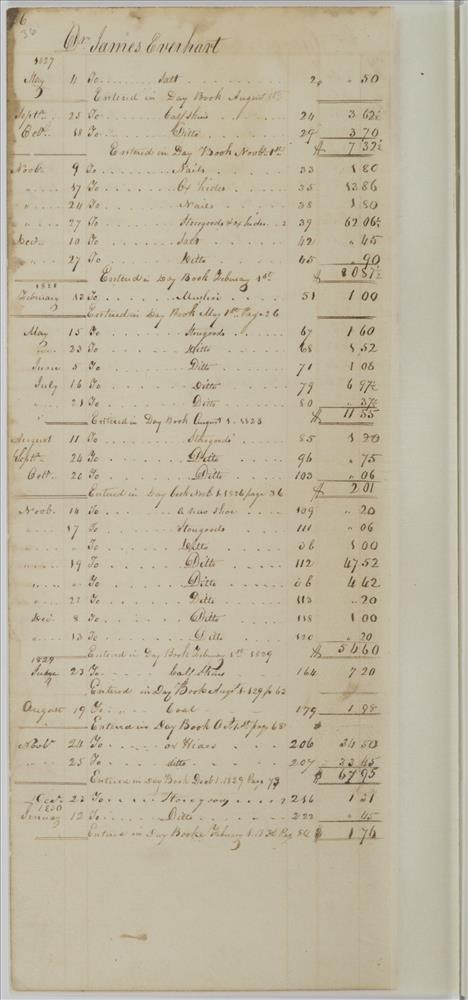 36
Dr James Everhart
1827
May 11 To Salt 2 " 50
Entered in Day Book August 1st
Septr 25 To Calf Skins 24 3 62½
Octr 18 To Ditto 29 3 70
Entered in Day Book Novbr 1st $ 7 32½
Novbr 9 To Nails 33 1 80
" 17 To Ox hides 35 13 86
" 24 To Nails 38 1 80
" 27 To Storegoods & ox hides 39 62 06½
Decr 10 To Salt 42 " 45
" 27 To Ditto 45 " 90
Entered in Day Book Febuary 1st $ 80 87½
1828
Febuary 12 To Muslin 51 1 00
Entered in Day Book May 1st Page 26
May 15 To Storegoods 67 1 60
" 23 To Ditto 68 1 52
June 5 To Ditto 71 1 08
July 16 To Ditto 79 6 97½
" 21 To Ditto 80 " 37½
Entered in Day Book August 1. 1828 $ 11 55
August 11 To Storegoods 85 1 20
Septr 24 To Ditto 96 " 75
Octr 20 To Ditto 103 " 06
Entered in Day Book Novbr 1. 1828 page 36 $ 2 01
Novbr 14 To a new shoe 109 " 20
" 17 To Storegoods 111 " 06
" " To Ditto 1 00
" 19 To Ditto 112 47 52
" " To Ditto 4 42
" 22 To Ditto 113 " 20
Decr 8 To Ditto 118 1 00
" 13 To Ditto 120 " 20
Entered in Day Book Febuary 1st 1829 $ 54 60
1829
23 To Calf Skins 164 7 20
Entered in Day Book Augt 1. 1829 p 62
August 19 To Coal 179 1 98
Entered in Day Book Oct 1st page 68
Novbr 24 To ox Hides 206 34 50
" 25 To ditto 207 33 45
Entered in Day Book Decbr 1. 1829 Page 73 $ 67 95
Decr 23 To Storegoods 216 1 31
1830
Jenuary 12 To Ditto 222 " 45
Entered in Day Booke Febuary 1. 1830 Pag 84 $ 1 76